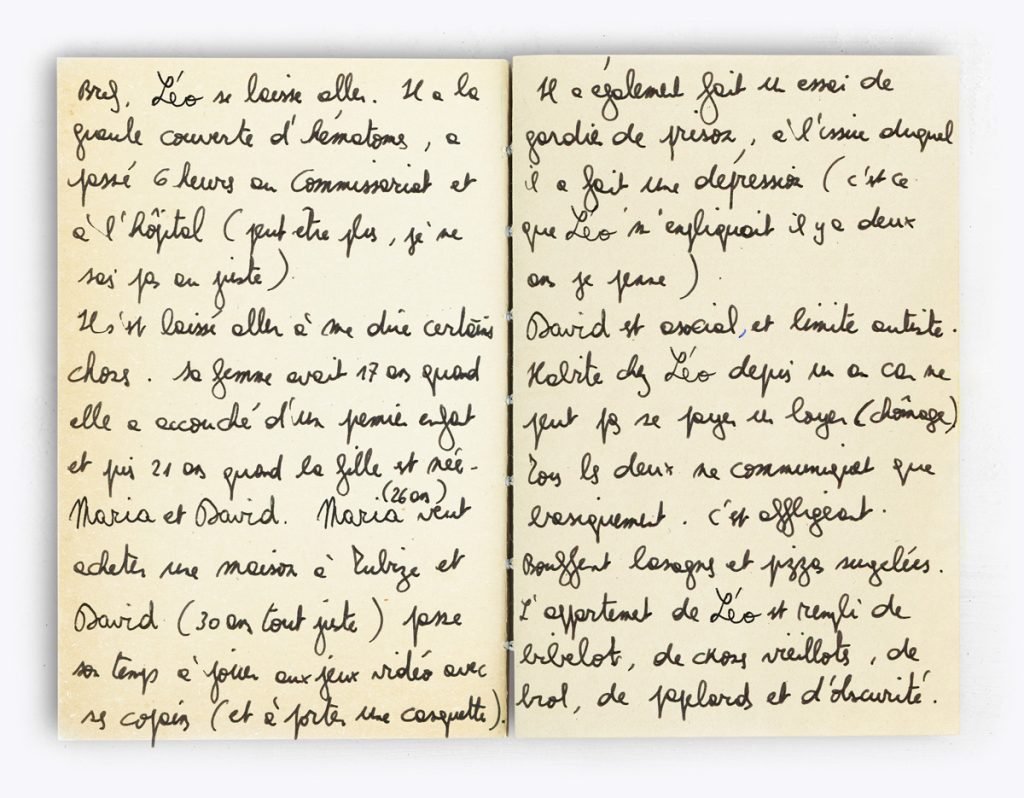 Bref, Léo se laisse aller. Il a la
gueule couverte d'hématomes, a
passé 6 heures au Commissariat et
à l'hôpital (peut être plus, je ne
sais pas au juste)
Il s'est laissé aller à me dire certaines
choses. Sa femme avait 17 ans quand
elle a accouché d'un premier enfant
et puis 21 ans quand la fille est née.
Maria et David. Maria (26 ans) veut
acheter une maison à Tubize et
David (30 ans tout juste) passe
son temps à jouer aux jeux vidéo avec
ses copains (et à porter une casquette).
Il a également fait un essai de
gardie de prison, à l'issue duquel
il a fait une dépression (c'est ce
que Léo m'expliquait il y a deux
ans je pense)
David est asocial, et limite autiste.
Habite chez Léo depuis un an car ne
peut pas se payer un loyer (chômage)
Tous les deux ne communiquent que
basiquement. C'est affligeant.
Bouffent lasagnes et pizzas surgelées.
L'appartement de Léo est rempli de
bibelot, de choses vieillots, de
brol, de paplards et d'obscurité.